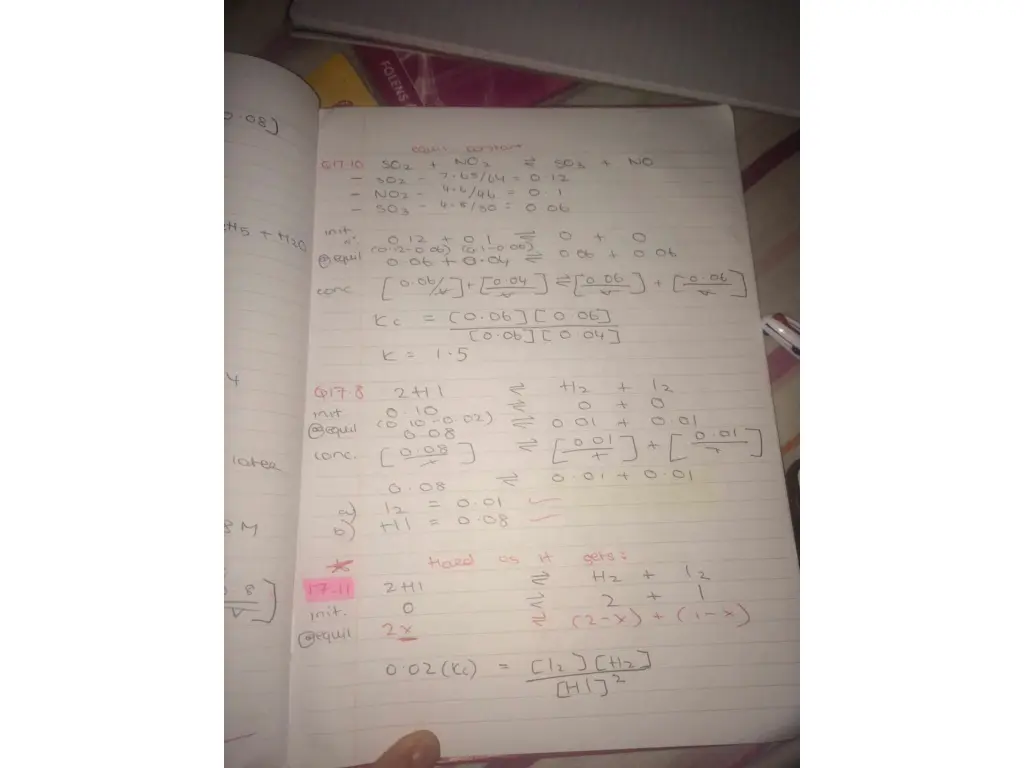 FOLENS
0.08]
equil. constant
Q17.10 SO₂ + NO₂ ⇌ SO₃ + NO
- SO₂ - 7.65/64 = 0.12
- NO₂ - 4.6/46 = 0.1
- SO₃ - 4.8/80 = 0.06
H5 + H2O
init. 0.12 + 0.1 ⇌ 0 + 0
@equil (0.12-0.06) (0.1-0.06)
0.06 + 0.04 ⇌ 0.06 + 0.06
conc. [0.06/V] + [0.04/V] ⇌ [0.06/V] + [0.06/V]
Kc = [0.06][0.06]
[0.06][0.04]
K = 1.5
4
Q17.8 2HI ⇌ H₂ + I₂
init 0.10 ⇌ 0 + 0
@equil (0.10-0.02) ⇌ 0.01 + 0.01
0.08
conc. [0.08/] ⇌ [0.01/] + [0.01/]
later
0.08 ⇌ 0.01 + 0.01
a) I₂ = 0.01 ✓
b) HI = 0.08 ✓
8M
Hard as it gets:
17.11 2HI ⇌ H₂ + I₂
8/V]
init. 0 ⇌ 2 + 1
@equil 2x ⇌ (2-x) + (1-x)
0.02(Kc) = [I₂][H₂]
[HI]²